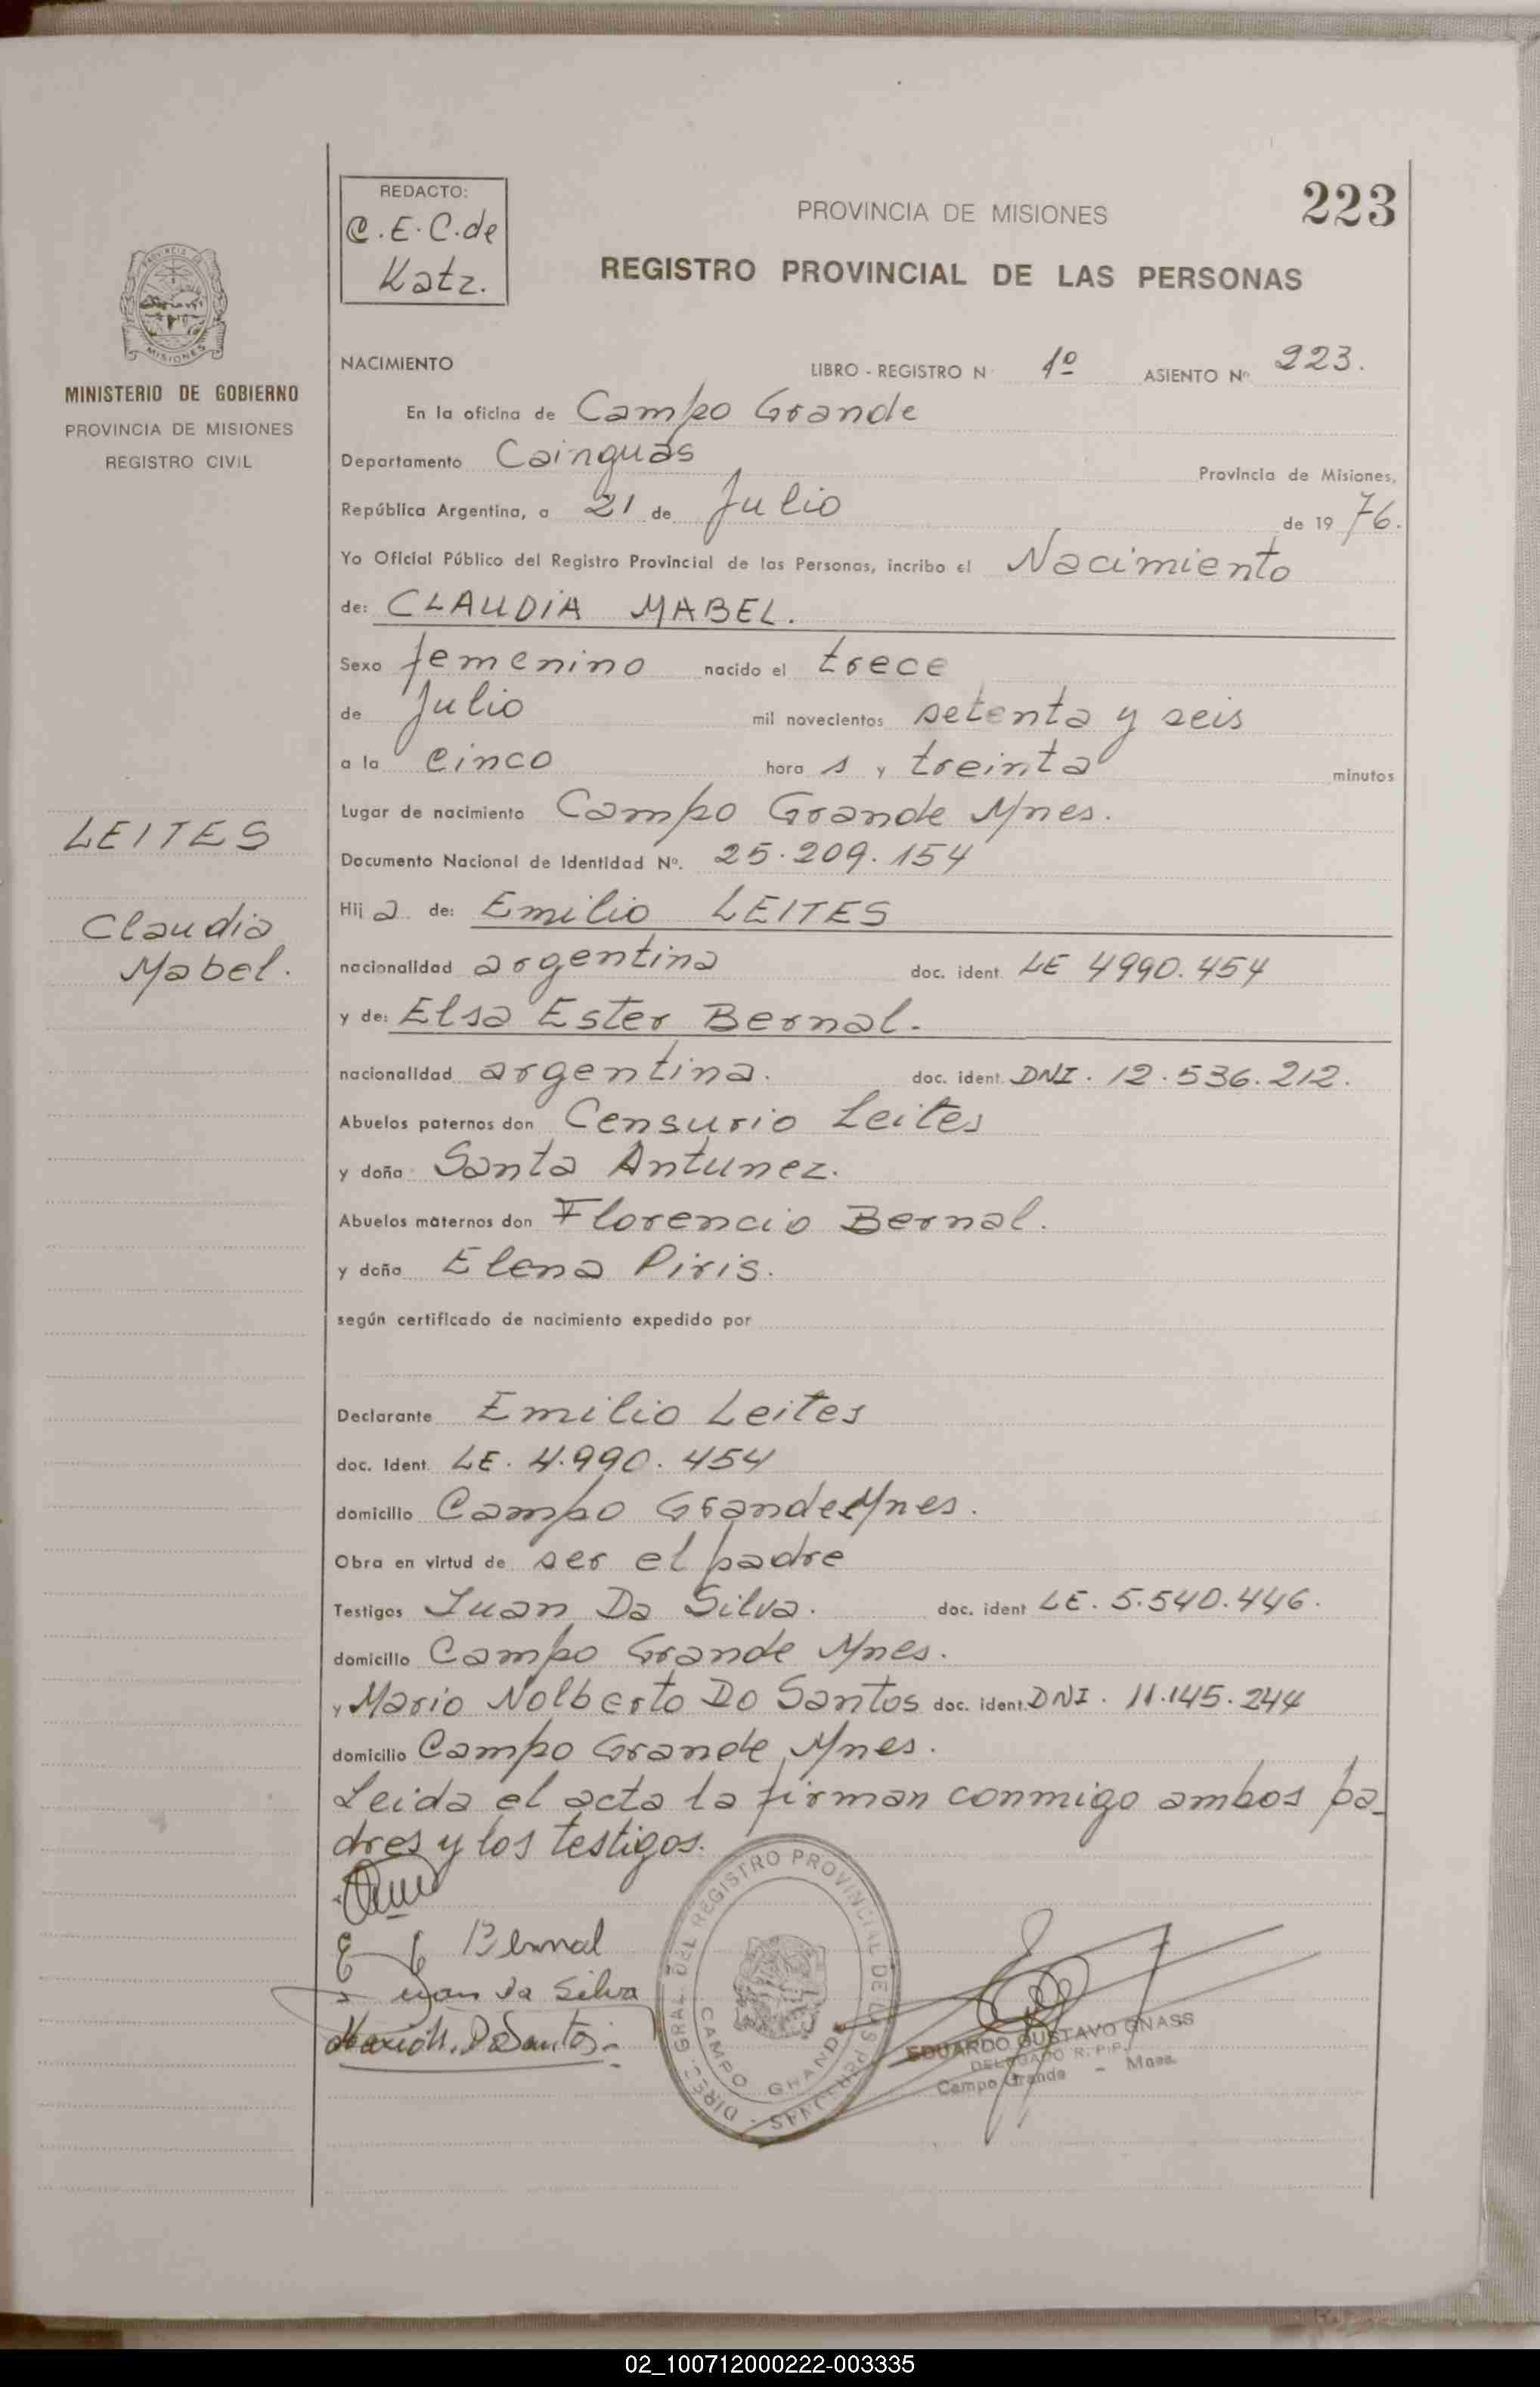 REDACTO:
C.E.C. de
Katz.
PROVINCIA DE MISIONES
223
REGISTRO PROVINCIAL DE LAS PERSONAS
PROVINCIA DE
MISIONES
MINISTERIO DE GOBIERNO
PROVINCIA DE MISIONES
REGISTRO CIVIL
NACIMIENTO LIBRO - REGISTRO N 1º ASIENTO Nº 223.
En la oficina de Campo Grande
Departamento Cainguás Provincia de Misiones,
República Argentina, a 21 de Julio de 19 76.
Yo Oficial Público del Registro Provincial de las Personas, incribo el Nacimiento
de: CLAUDIA MABEL.
Sexo femenino nacido el trece
de Julio mil novecientos setenta y seis
a la cinco hora s y treinta minutos
Lugar de nacimiento Campo Grande Mnes.
LEITES
Documento Nacional de Identidad Nº. 25.209.154
Hij a de: Emilio LEITES
Claudia
Mabel.
nacionalidad argentina doc. ident. LE 4990.454
y de: Elsa Ester Bernal.
nacionalidad argentina. doc. ident. DNI. 12.536.212.
Abuelos paternos don Censurio Leites
y doña Santa Antunez.
Abuelos maternos don Florencio Bernal.
y doña Elena Piris.
según certificado de nacimiento expedido por
Declarante Emilio Leites
doc. Ident. LE. 4.990.454
domicilio Campo Grande Mnes.
Obra en virtud de ser el padre
Testigos Juan Da Silva. doc. ident LE. 5.540.446.
domicilio Campo Grande Mnes.
y Mario Nolberto Do Santos doc. ident. DNI. 11.145.244
domicilio Campo Grande Mnes.
Leida el acta la firman conmigo ambos pa-
dres y los testigos.
E E Bernal
Juan da Silva
Mario N. Do Santos
DIREC. GRAL. DEL REGISTRO PROVINCIAL DE LAS PERSONAS -
CAMPO GRANDE
EDUARDO GUSTAVO GNASS
DELEGADO R.P.P.
Campo Grande - Mnes.
02_100712000222-003335